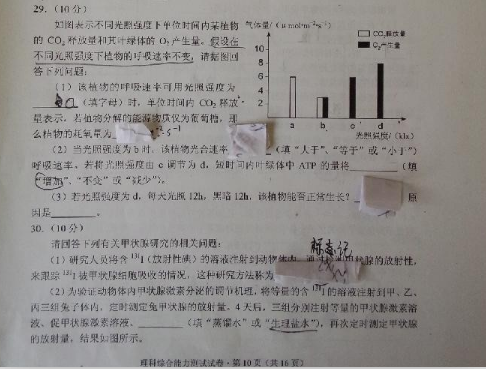 29.（10分）
如图表示不同光照强度下单位时间内某植物
的 CO₂ 释放量和其叶绿体的 O₂ 产生量。假设在
不同光照强度下植物的呼吸速率不变，请据图回
答下列问题：
气体量/(μmol·m⁻²·s⁻¹)
CO₂释放量
O₂产生量
10
8
6
4
2
a b c d
光照强度/(klx)
（1）该植物的呼吸速率可用光照强度为
（填字母）时，单位时间内 CO₂ 释放
量表示，若植物分解的能源物质仅为葡萄糖，那
么植物的耗氧量为
（2）当光照强度为 b 时，该植物光合速率（填“大于”、“等于”或“小于”）
呼吸速率。若将光照强度由 c 调节为 d，短时间内叶绿体中 ATP 的量将（填
“增加”、“不变”或“减少”）。
（3）若光照强度为 d，每天光照 12h，黑暗 12h，该植物能否正常生长？原
因是________。
30.（10分）
请回答下列有关甲状腺研究的相关问题：
（1）研究人员将含 ¹³¹I（放射性碘）的溶液注射到动物体内，甲状腺的放射性，
来跟踪 ¹³¹I 被甲状腺细胞吸收的情况，这种研究方法称为
（2）为验证动物体内甲状腺激素分泌的调节机理，将等量的含 ¹³¹I 的溶液注射到甲、乙、
丙三组兔子体内，定时测定兔甲状腺的放射量。4 天后，三组分别注射等量的甲状腺激素溶
液、促甲状腺激素溶液、______（填“蒸馏水”或“生理盐水”），再次定时测定甲状腺
的放射量，结果如图所示。
理科综合能力测试试卷·第 10 页（共 16 页）